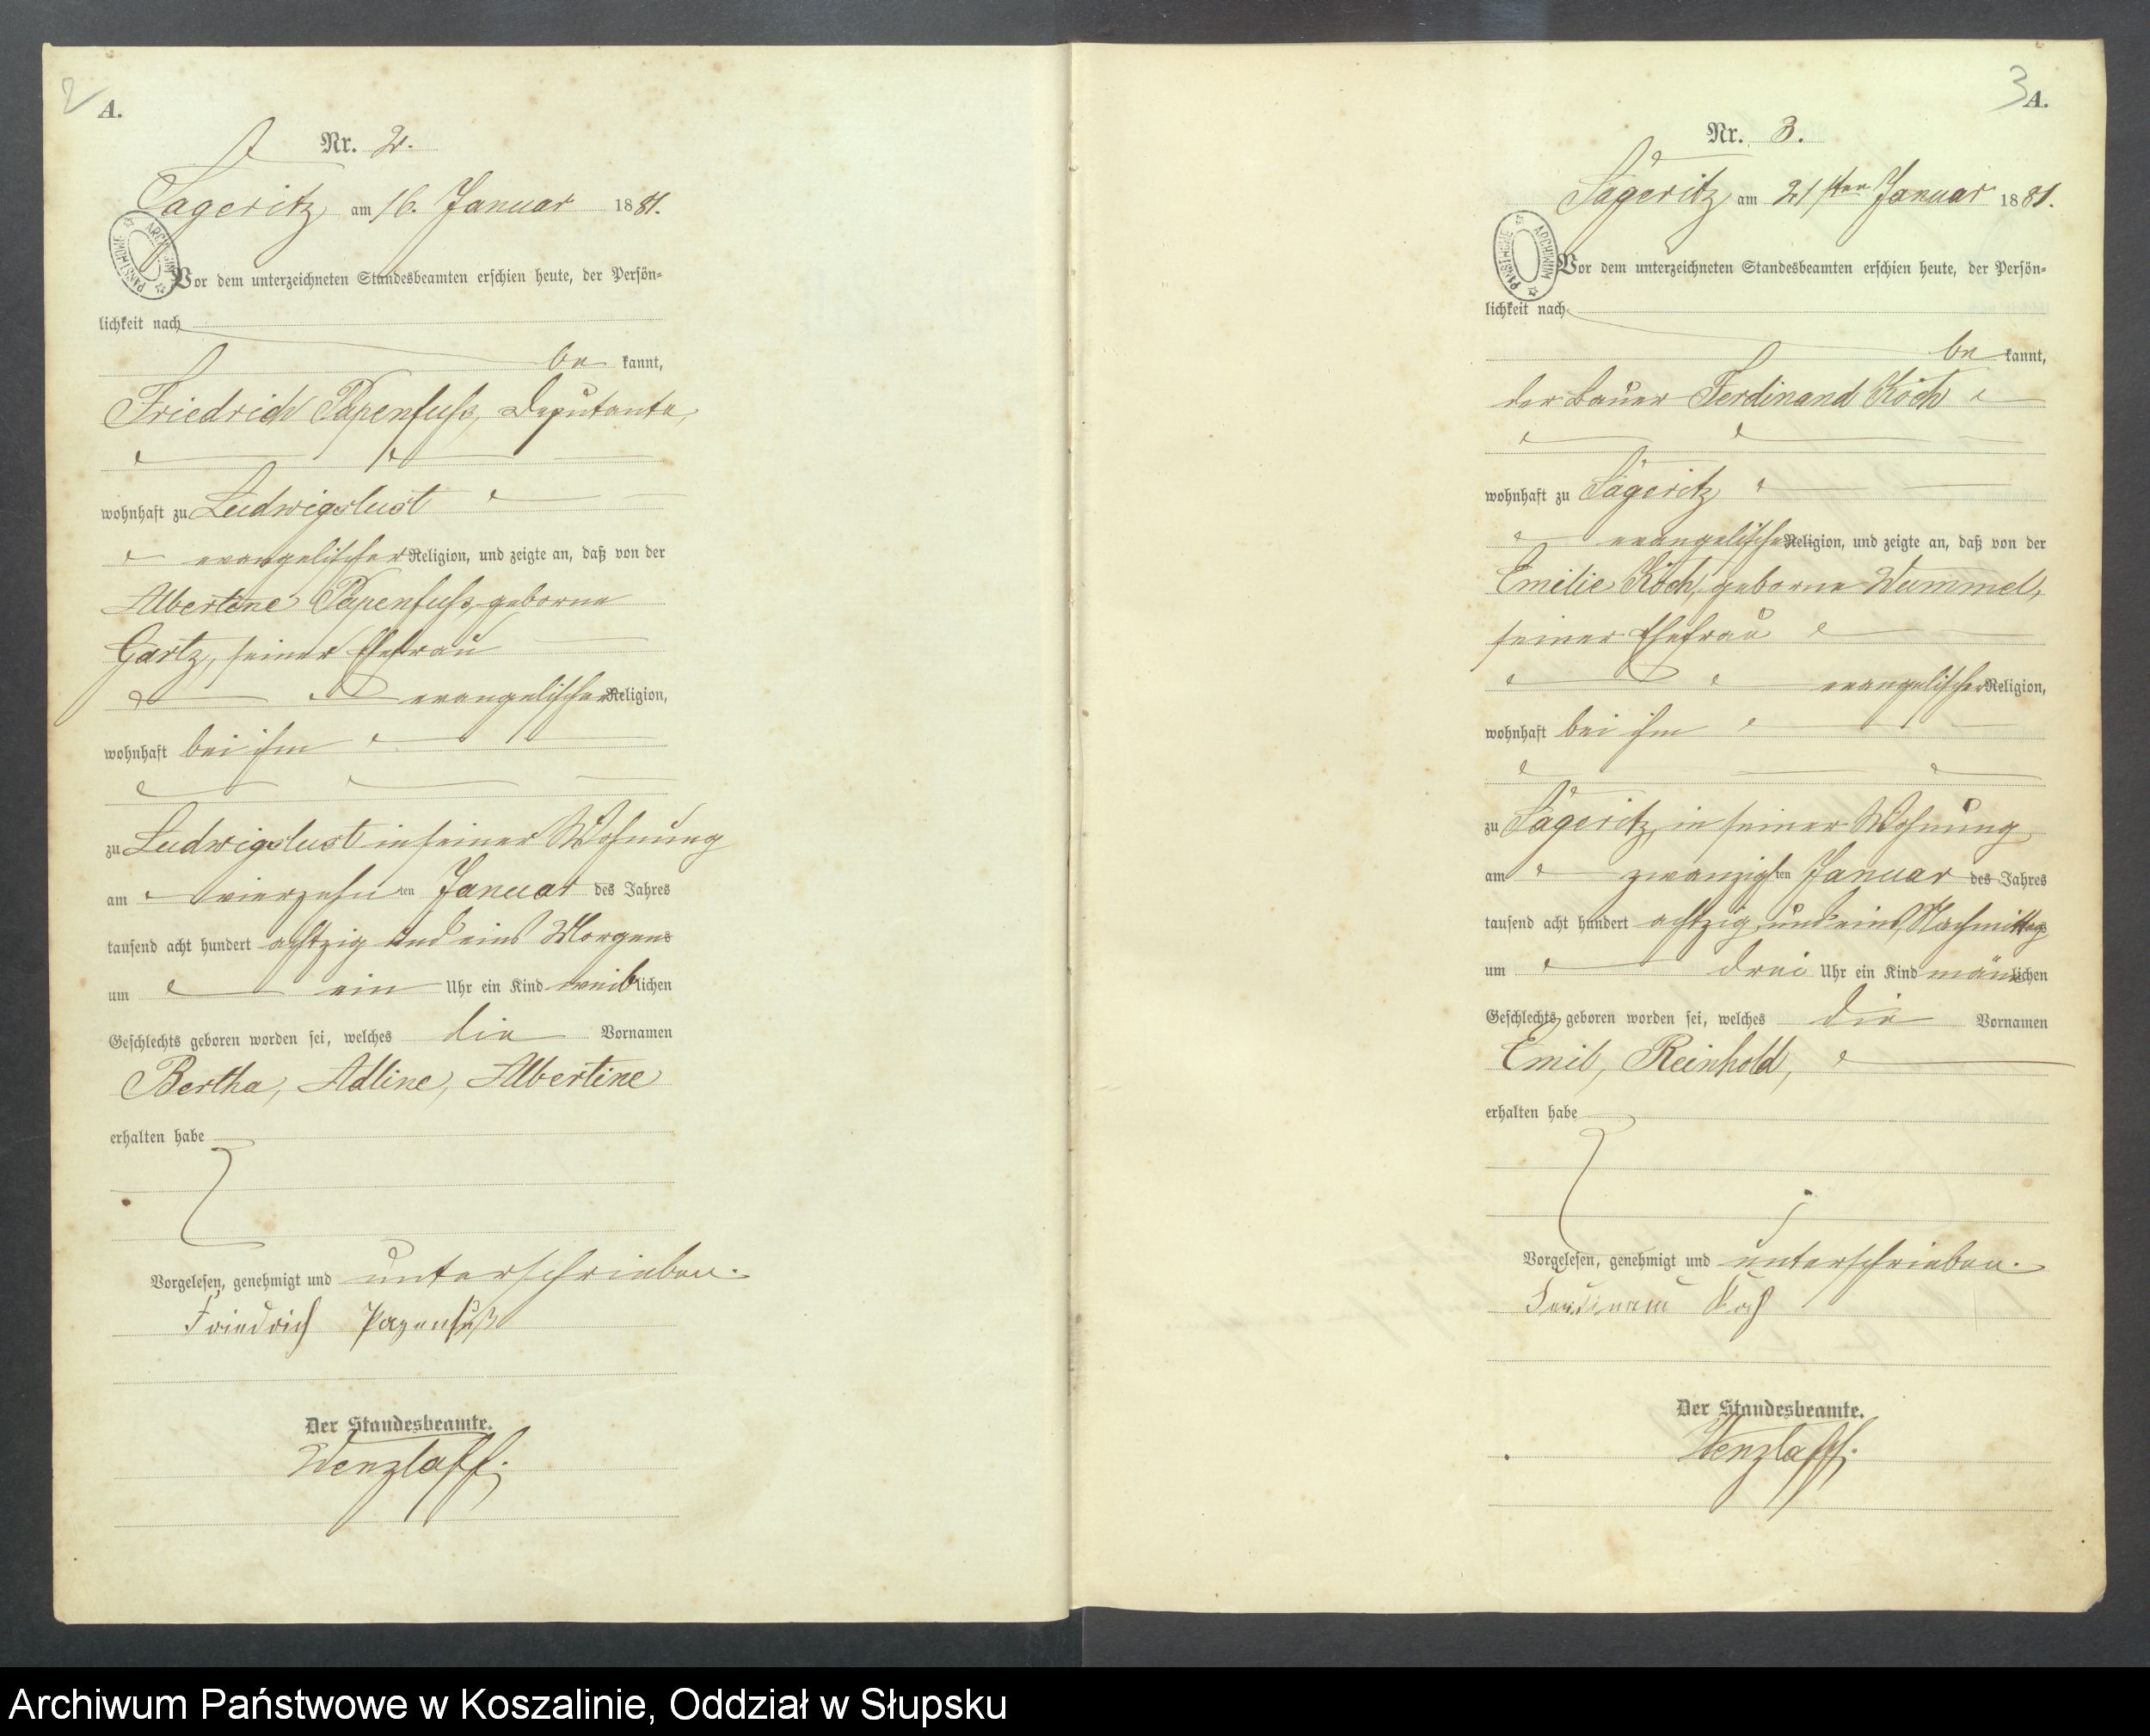 2
A.
Nr. 2.
Sageritz am 16. Januar 1881.
ARCHIWUM PAŃSTWOWE
Vor dem unterzeichneten Standesbeamten erschien heute, der Persön-
lichkeit nach
be kannt,
Friedrich Papenfuß, Deputante,
wohnhaft zu Ludwigslust
evangelischer Religion, und zeigte an, daß von der
Albertine Papenfuß, geborne
Gartz, seiner Ehefrau
evangelischer Religion,
wohnhaft bei ihm
zu Ludwigslust in seiner Wohnung
am vierzehn ten Januar des Jahres
tausend acht hundert achtzig und eins Morgens
um ein Uhr ein Kind weiblichen
Geschlechts geboren worden sei, welches die Vornamen
Bertha, Adline, Albertine
erhalten habe
Vorgelesen, genehmigt und unterschrieben.
Friedrich Papenfuß
Der Standesbeamte.
Wenzlaff.
3
A.
Nr. 3.
Sageritz am 21sten Januar 1881.
ARCHIWUM PAŃSTWOWE
Vor dem unterzeichneten Standesbeamten erschien heute, der Persön-
lichkeit nach
be kannt,
der Bauer Ferdinand Koch
wohnhaft zu Sageritz
evangelischer Religion, und zeigte an, daß von der
Emilie Koch, geborne Wummel,
seiner Ehefrau
evangelischer Religion,
wohnhaft bei ihm
zu Sageritz, in seiner Wohnung
am zwanzigsten Januar des Jahres
tausend acht hundert achtzig und eins, Nachmittags
um drei Uhr ein Kind männlichen
Geschlechts geboren worden sei, welches die Vornamen
Emil, Reinhold,
erhalten habe
Vorgelesen, genehmigt und unterschrieben.
Ferdinand Koch
Der Standesbeamte.
Wenzlaff.
Archiwum Państwowe w Koszalinie, Oddział w Słupsku